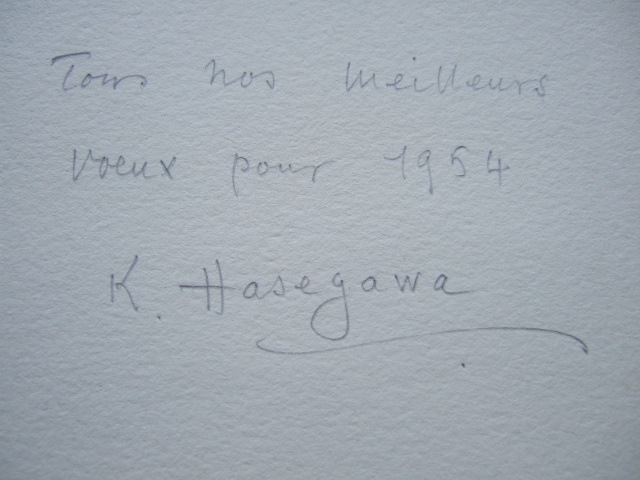 Tous nos meilleurs
voeux pour 1954
K. Hasegawa